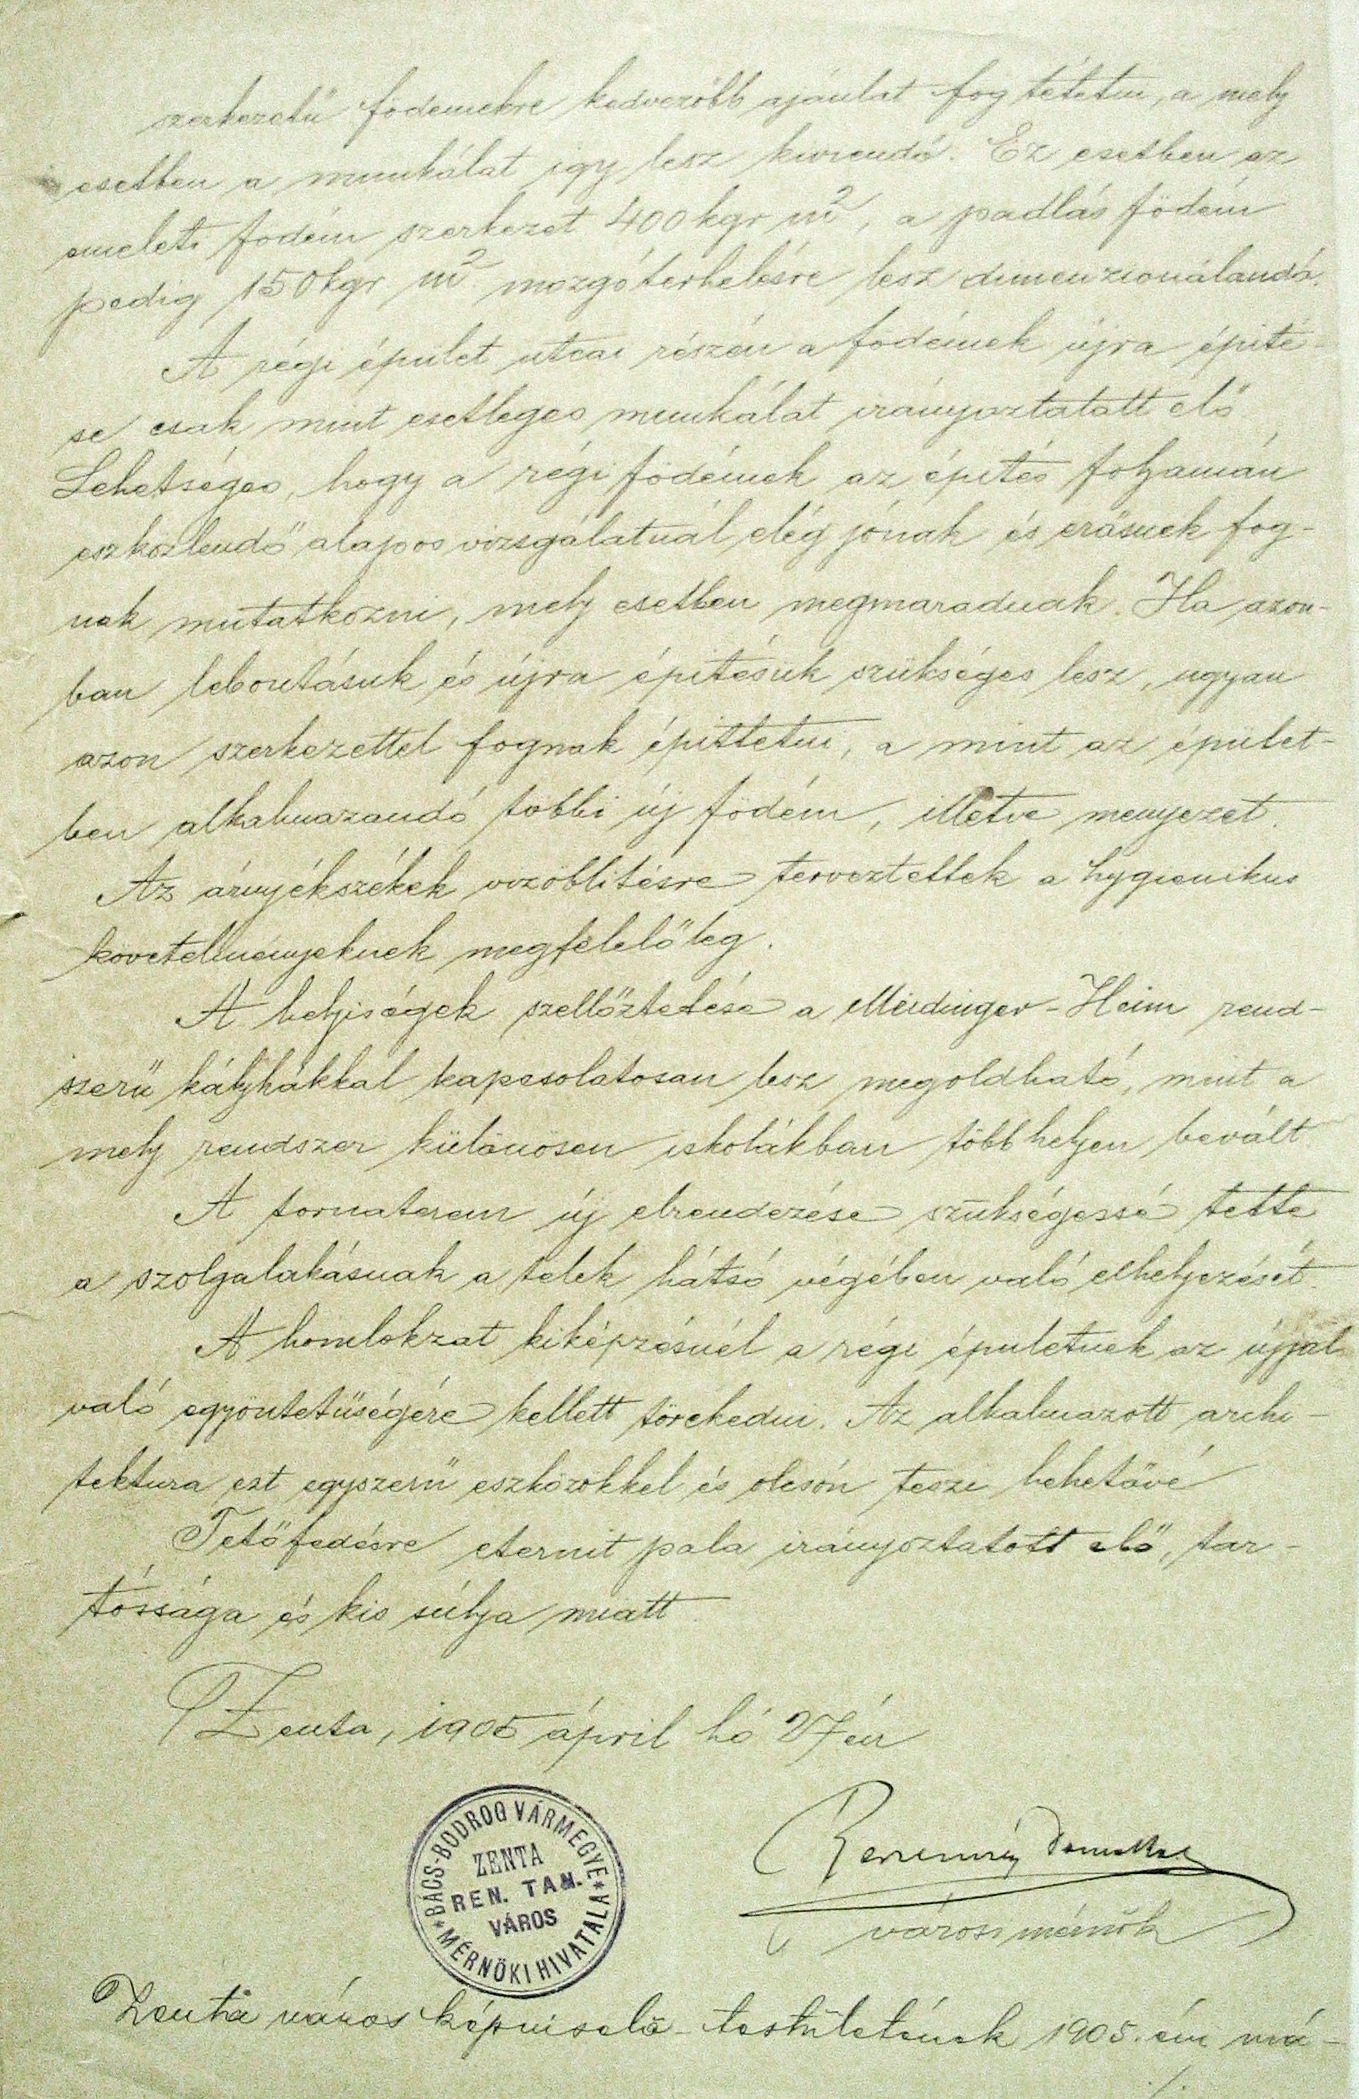 szerkezetű födemekre kedvezőbb ajánlat fog tétetni, a mely
esetben a munkálat igy lesz kiviendő. Ez esetben az
emeleti födém szerkezet 400 kgr m², a padlás födém
pedig 150 kgr m² mozgóterhelésre lesz dimenzionálandó.
A régi épület utcai részén a födémek újra épité-
se csak mint esetleges munkálat irányoztatott elő
Lehetséges, hogy a régi födémek az épités folyamán
eszközlendő alapos vizsgálatnál elég jónak és erősnek fog-
nak mutatkozni, mely esetben megmaradnak. Ha azon-
ban lebontásuk és újra épitésük szükséges lesz, ugyan
azon szerkezettel fognak épittetni, a mint az épület-
ben alkalmazandó többi új födém, illetve menyezet.
Az árnyékszékek vizöblitésre terveztettek a hygienikus
követelményeknek megfelelőleg.
A helyiségek szellőztetése a Meidinger-Heim rend-
szerű kályhákkal kapcsolatosan lesz megoldható, mint a
mely rendszer különösen iskolákban több helyen bevált.
A tornaterem új elrendezése szükségessé tette
a szolgalakásnak a telek hátsó végében való elhelyezését.
A homlokzat kiképzésnél a régi épületnek az újjal
való egyöntetűségére kellett törekedni. Az alkalmazott archi-
tektura ezt egyszerű eszközökkel és olcsón teszi lehetővé
Tetőfedésre eternit pala irányoztatott elő, tar-
tóssága és kis súlya miatt.
Zenta, 1905 ápril hó 27 én
BÁCS-BODROG VÁRMEGYE
ZENTA
REN. TAN.
VÁROS
MÉRNÖKI HIVATALA
városi mérnök
Zenta város képviselő-testületének 1905. évi má-